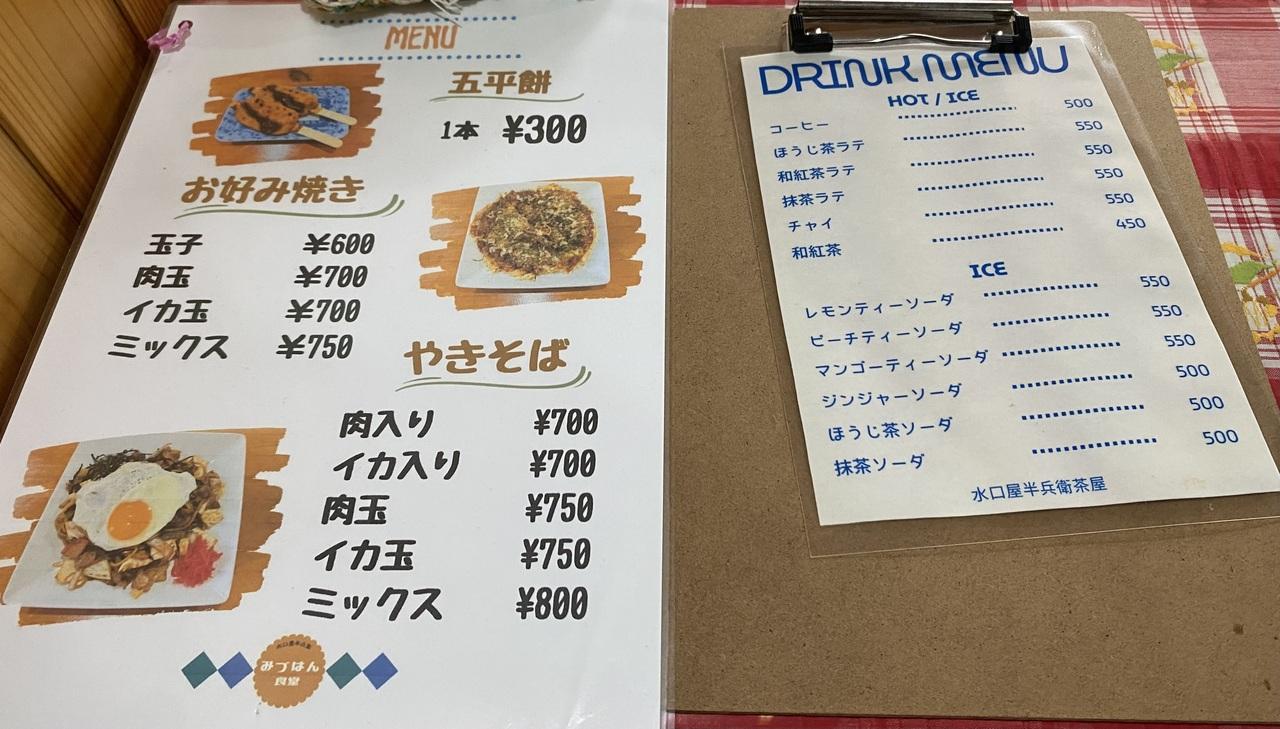 MENU
五平餅
1本 ¥300
お好み焼き
玉子 ¥600
肉玉 ¥700
イカ玉 ¥700
ミックス ¥750
やきそば
肉入り ¥700
イカ入り ¥700
肉玉 ¥750
イカ玉 ¥750
ミックス ¥800
みづはん
食堂
DRINK MENU
HOT / ICE
コーヒー 500
ほうじ茶ラテ 550
和紅茶ラテ 550
抹茶ラテ 550
チャイ 550
和紅茶 450
ICE
レモンティーソーダ 550
ピーチティーソーダ 550
マンゴーティーソーダ 550
ジンジャーソーダ 500
ほうじ茶ソーダ 500
抹茶ソーダ 500
水口屋半兵衛茶屋